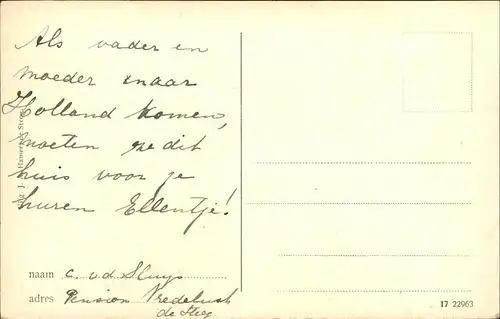 Als vader en
moeder naar
Holland komen,
moeten ze dit
huis voor je
huren Ellentje!
naam C. v d Sluys
adres Pension Vredelust
de Steeg
17 22963